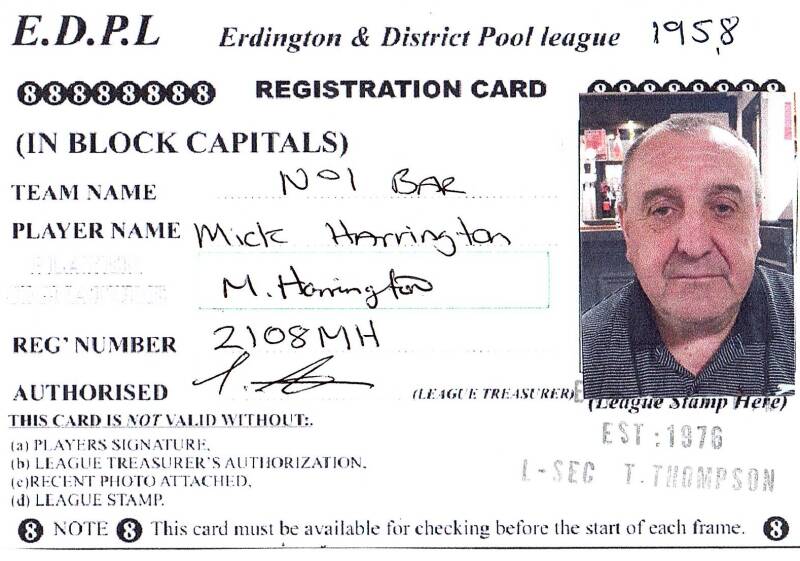 E.D.P.L Erdington & District Pool league 1958
88888888 REGISTRATION CARD 88888888
(IN BLOCK CAPITALS)
TEAM NAME No1 BAR
PLAYER NAME Mick Harrington
PLAYERS SIGNATURE M. Harrington
REG' NUMBER 2108MH
AUTHORISED (LEAGUE TREASURER)
(League Stamp Here)
THIS CARD IS NOT VALID WITHOUT:.
(a) PLAYERS SIGNATURE.
(b) LEAGUE TREASURER'S AUTHORIZATION.
(c)RECENT PHOTO ATTACHED.
(d) LEAGUE STAMP.
EST:1976
L-SEC T.THOMPSON
8 NOTE 8 This card must be available for checking before the start of each frame. 8